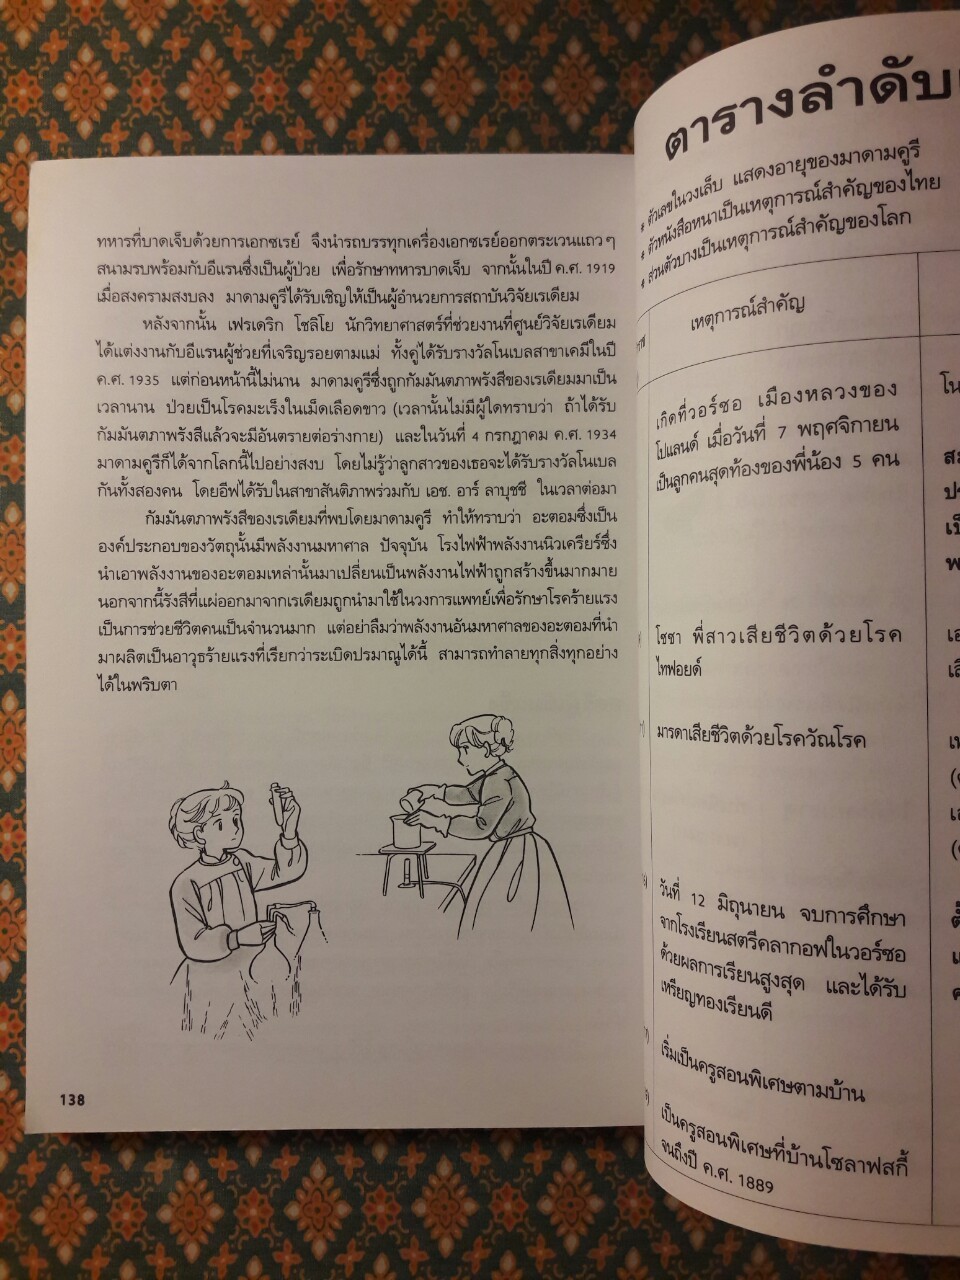 ทหารที่บาดเจ็บด้วยการเอกซเรย์ จึงนำรถบรรทุกเครื่องเอกซเรย์ออกตระเวนแถวๆ
สนามรบพร้อมกับอีแรนซึ่งเป็นผู้ป่วย เพื่อรักษาทหารบาดเจ็บ จากนั้นในปี ค.ศ. 1919
เมื่อสงครามสงบลง มาดามคูรีได้รับเชิญให้เป็นผู้อำนวยการสถาบันวิจัยเรเดียม
หลังจากนั้น เฟรเดริก โชลิโย นักวิทยาศาสตร์ที่ช่วยงานที่ศูนย์วิจัยเรเดียม
ได้แต่งงานกับอีแรนผู้ช่วยที่เจริญรอยตามแม่ ทั้งคู่ได้รับรางวัลโนเบลสาขาเคมีในปี
ค.ศ. 1935 แต่ก่อนหน้านี้ไม่นาน มาดามคูรีซึ่งถูกกัมมันตภาพรังสีของเรเดียมมาเป็น
เวลานาน ป่วยเป็นโรคมะเร็งในเม็ดเลือดขาว (เวลานั้นไม่มีผู้ใดทราบว่า ถ้าได้รับ
กัมมันตภาพรังสีแล้วจะมีอันตรายต่อร่างกาย) และในวันที่ 4 กรกฎาคม ค.ศ. 1934
มาดามคูรีก็ได้จากโลกนี้ไปอย่างสงบ โดยไม่รู้ว่าลูกสาวของเธอจะได้รับรางวัลโนเบล
กันทั้งสองคน โดยอีฟได้รับในสาขาสันติภาพร่วมกับ เอช. อาร์ ลาบุชชี ในเวลาต่อมา
กัมมันตภาพรังสีของเรเดียมที่พบโดยมาดามคูรี ทำให้ทราบว่า อะตอมซึ่งเป็น
องค์ประกอบของวัตถุนั้นมีพลังงานมหาศาล ปัจจุบัน โรงไฟฟ้าพลังงานนิวเครียร์ซึ่ง
นำเอาพลังงานของอะตอมเหล่านั้นมาเปลี่ยนเป็นพลังงานไฟฟ้าถูกสร้างขึ้นมากมาย
นอกจากนี้รังสีที่แผ่ออกมาจากเรเดียมถูกนำมาใช้ในวงการแพทย์เพื่อรักษาโรคร้ายแรง
เป็นการช่วยชีวิตคนเป็นจำนวนมาก แต่อย่าลืมว่าพลังงานอันมหาศาลของอะตอมที่นำ
มาผลิตเป็นอาวุธร้ายแรงที่เรียกว่าระเบิดปรมาณูได้นี้ สามารถทำลายทุกสิ่งทุกอย่าง
ได้ในพริบตา
138
ตารางลำดับ
* ตัวเลขในวงเล็บ แสดงอายุของมาดามคูรี
* ตัวหนังสือหนาเป็นเหตุการณ์สำคัญของไทย
* ส่วนตัวบางเป็นเหตุการณ์สำคัญของโลก
เหตุการณ์สำคัญ
เกิดที่วอร์ซอ เมืองหลวงของ
โปแลนด์ เมื่อวันที่ 7 พฤศจิกายน
เป็นลูกคนสุดท้องของพี่น้อง 5 คน
โซซา พี่สาวเสียชีวิตด้วยโรค
ไทฟอยด์
มารดาเสียชีวิตด้วยโรควัณโรค
วันที่ 12 มิถุนายน จบการศึกษา
จากโรงเรียนสตรีคลากอฟในวอร์ซอ
ด้วยผลการเรียนสูงสุด และได้รับ
เหรียญทองเรียนดี
เริ่มเป็นครูสอนพิเศษตามบ้าน
เป็นครูสอนพิเศษที่บ้านโซลาฟสกี้
จนถึงปี ค.ศ. 1889